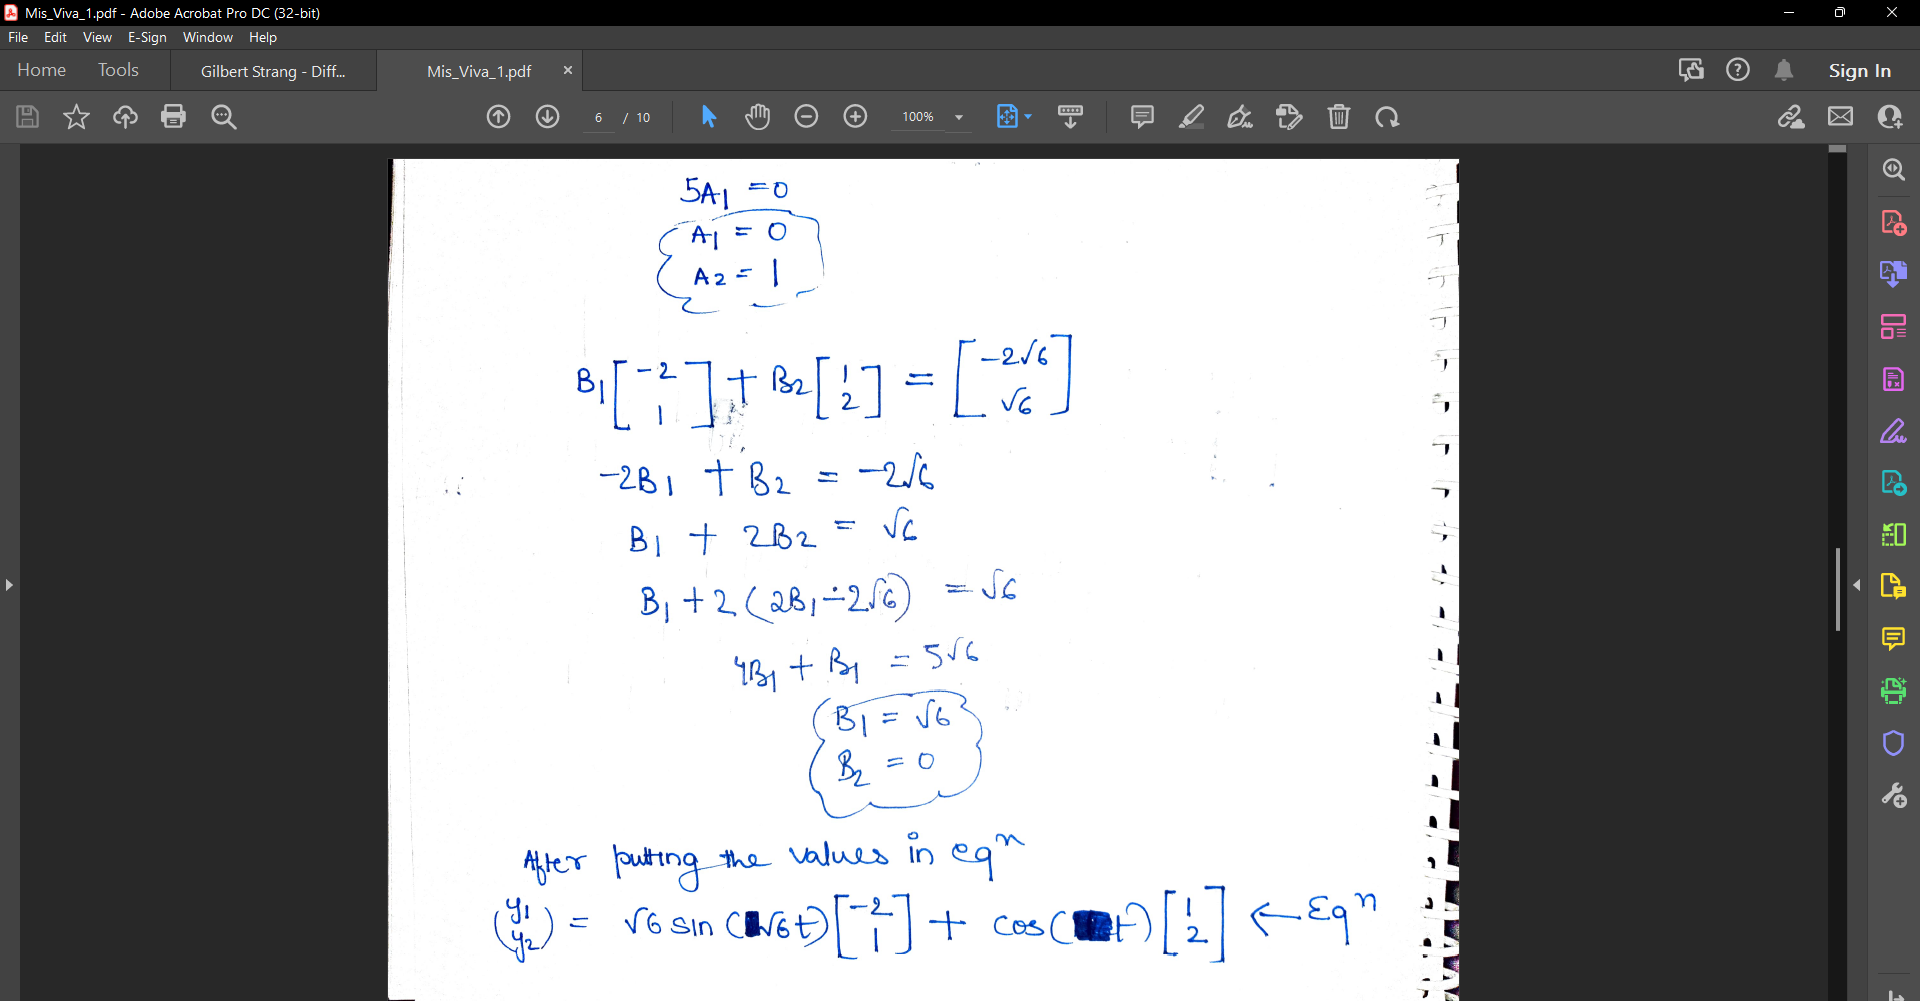 Mis_Viva_1.pdf - Adobe Acrobat Pro DC (32-bit)
File Edit View E-Sign Window Help
Home Tools Gilbert Strang - Diff... Mis_Viva_1.pdf × Sign In
6 / 10 100%
5A₁ = 0
A₁ = 0
A₂ = 1
B₁ [-2 1] + B₂ [1 2] = [-2√6 √6]
-2B₁ + B₂ = -2√6
B₁ + 2B₂ = √6
B₁ + 2(2B₁ - 2√6) = √6
4B₁ + B₁ = 5√6
B₁ = √6
B₂ = 0
After putting the values in eqⁿ
(y₁ y₂) = √6 sin(√6t) [-2 1] + cos(t) [1 2] ← Eqⁿ